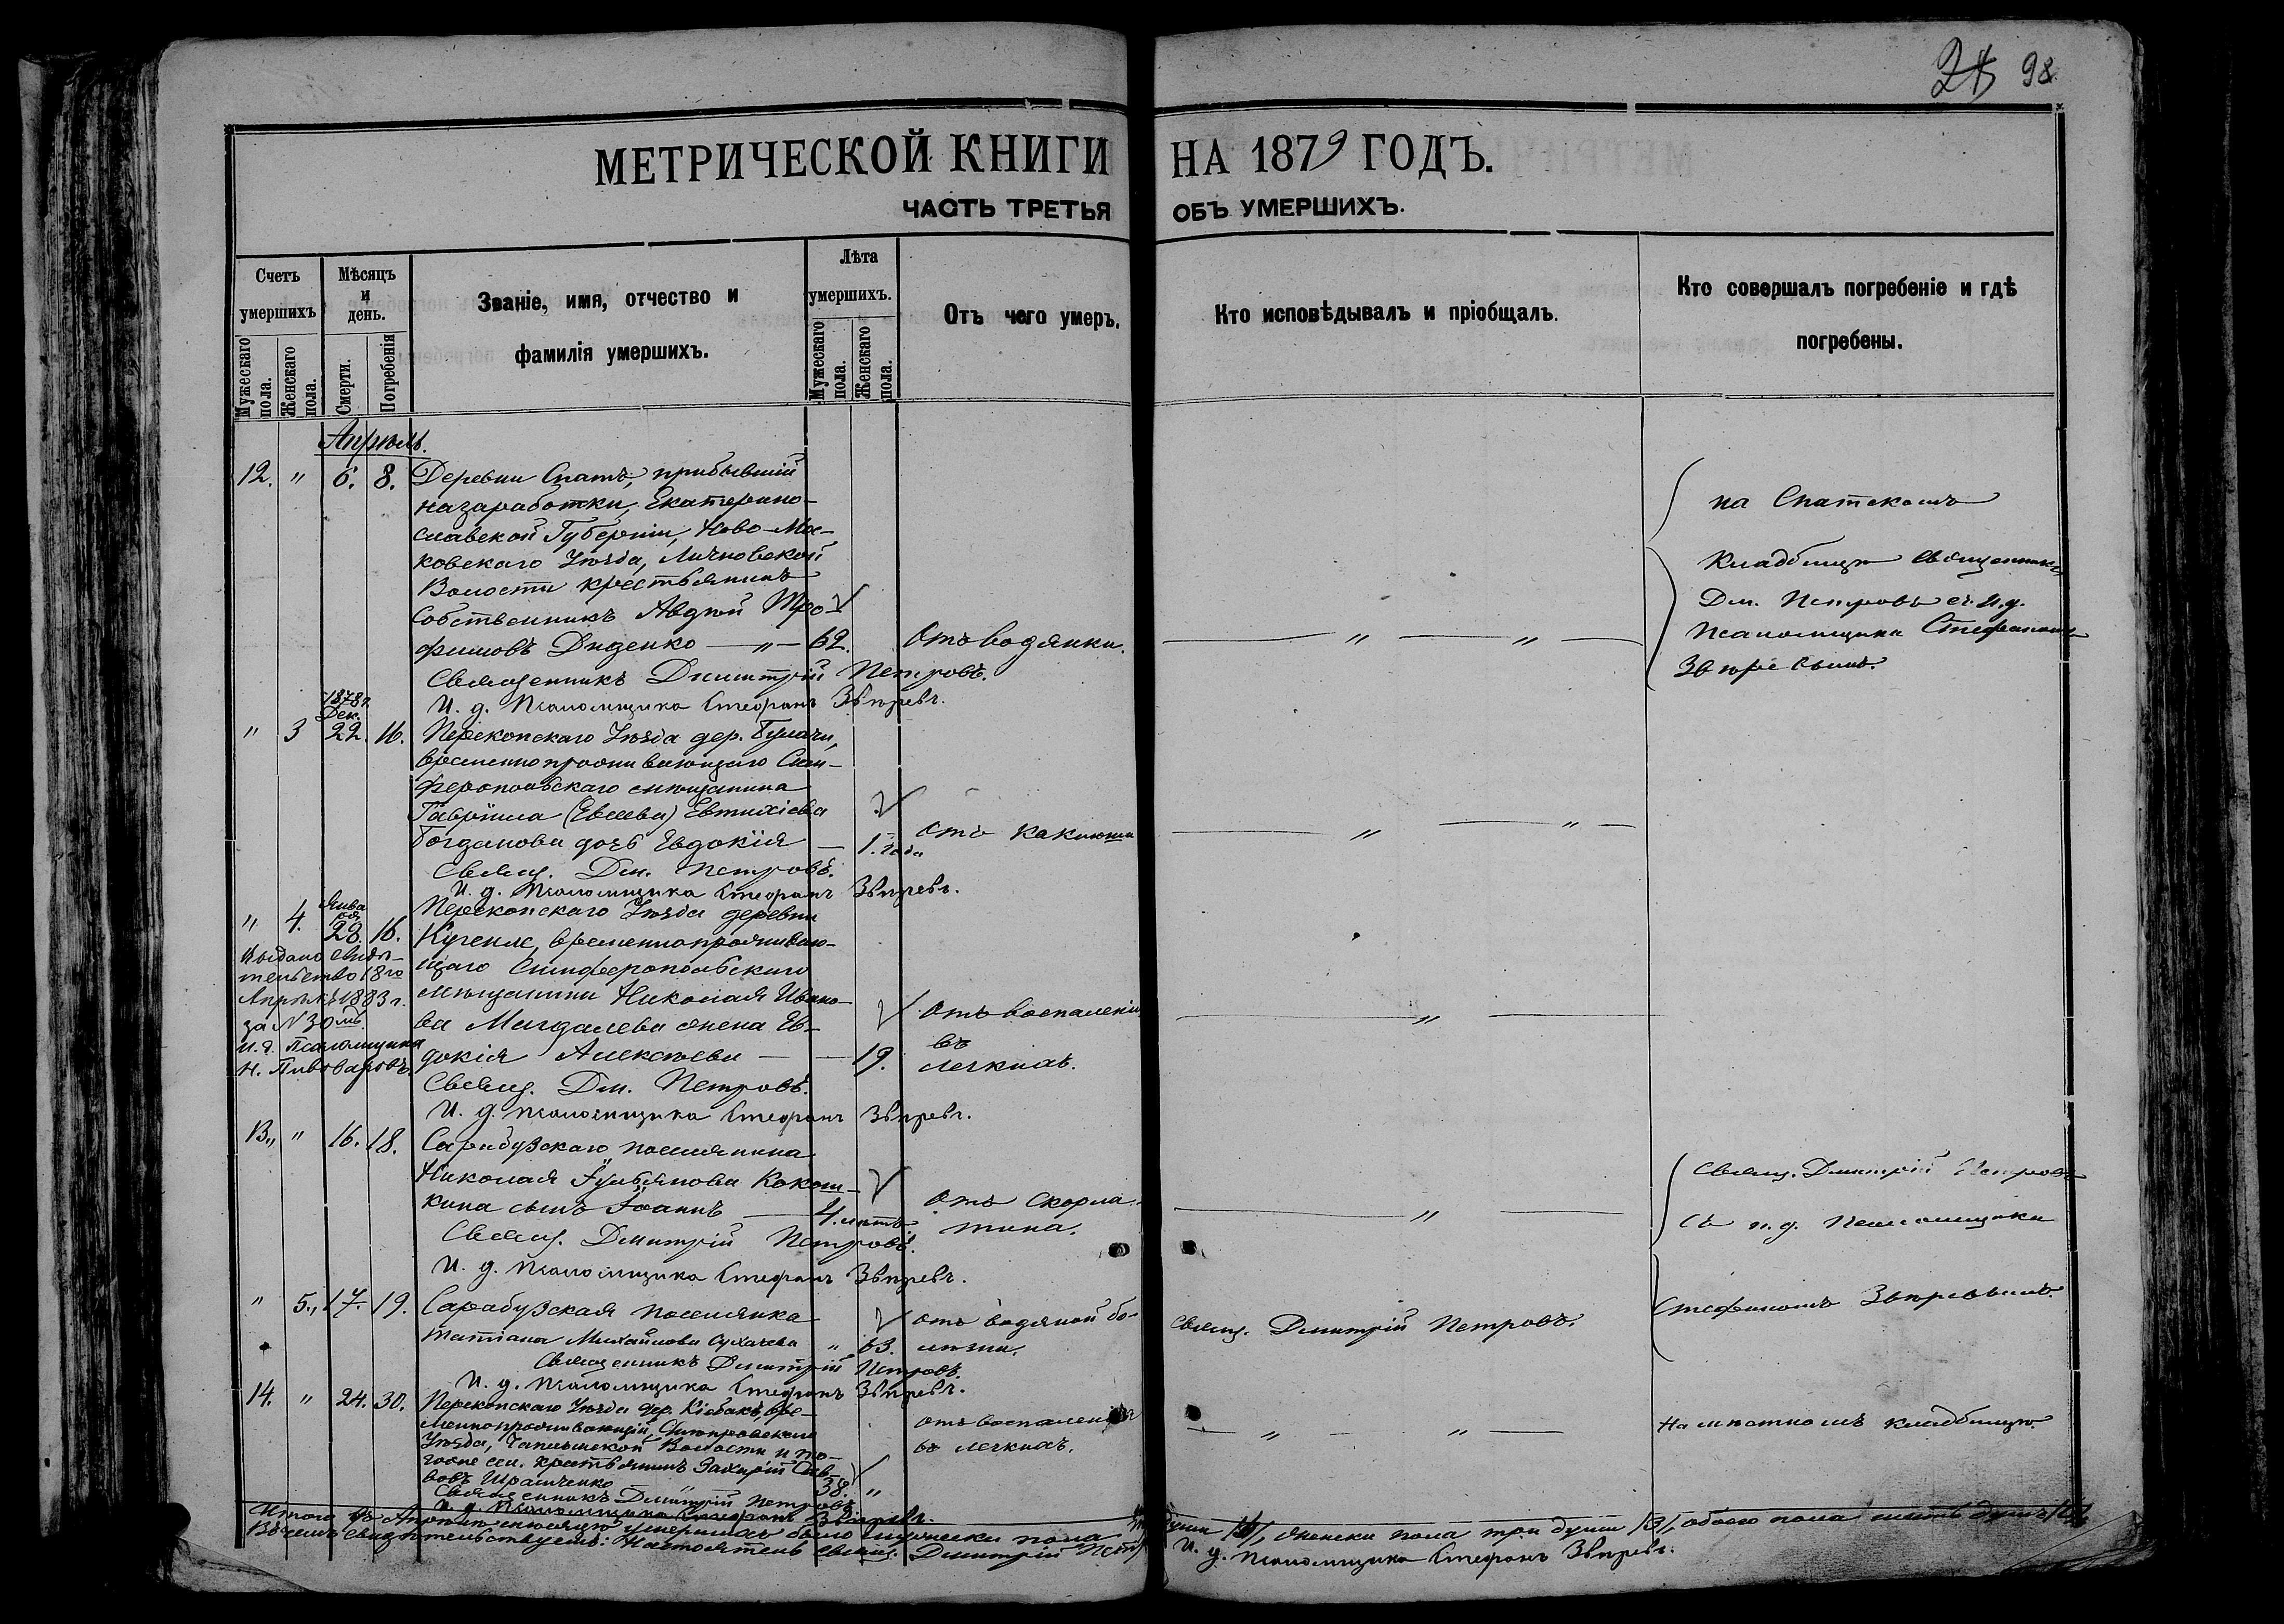 98
МЕТРИЧЕСКОЙ КНИГИ НА 1879 ГОДЪ.
ЧАСТЬ ТРЕТЬЯ ОБЪ УМЕРШИХЪ.
Счетъ умершихъ
Мужескаго пола.
Женскаго пола.
Мѣсяцъ и день.
Смерти.
Погребенія
Званіе, имя, отчество и
фамилія умершихъ.
Лѣта умершихъ.
Мужескаго пола.
Женскаго пола.
Отъ чего умеръ.
Кто исповѣдывалъ и пріобщалъ.
Кто совершалъ погребеніе и гдѣ
погребены.
Апрѣль.
12. " 6. 8. Деревни Спатъ, прибывшій
на заработки, Екатерино-
славской Губерніи, Ново-Мос-
ковскаго Уѣзда, Личковской
Волости крестьянинъ
Собственникъ Авдѣй Тро-
фимовъ Диденко — " — 62. Отъ водянки. " "
на Спатскомъ
Кладбищѣ Священникъ
Дм. Петровъ съ и. д.
Псаломщика Стефаномъ
Звѣревымъ.
Священникъ Димитрій Петровъ.
И. д. Псаломщика Стефанъ Звѣревъ.
1878 г.
Дек.
" 3 22. 16. Перекопскаго Уѣзда дер.
временно проживающаго Сим-
феропольскаго мѣщанина
Гавріила (Евсеева) Евтихіева
Богданова дочь Евдокія — 1. года отъ " "
Свящ. Дм. Петровъ.
И. д. Псаломщика Стефанъ Звѣревъ.
Янва
ря
" 4. 28. 16. Перекопскаго Уѣзда деревни
временно проживаю-
щаго Симферопольскаго
мѣщанина Николая Ивано-
ва Магдалева жена Ев-
докія Алексѣева — 19. Отъ воспаленія
въ
легкихъ. "
Выдано свидѣ-
тельство 18го
Апрѣля 1883 г.
за N 30мъ.
И. д. Псаломщика
Н. Пивоваровъ.
Свящ. Дм. Петровъ.
И. д. Псаломщика Стефанъ Звѣревъ.
13,, " 16. 18. Сарабузскаго поселянина
Николая Ульянова Кокош-
кина сынъ Іоаннъ — 4. лѣтъ отъ скорла-
тина. "
Свящ. Димитрій Петровъ
съ и. д. Псаломщика
Стефаномъ Звѣревымъ.
Свящ. Димитрій Петровъ.
И. д. Псаломщика Стефанъ Звѣревъ.
" 5,, 17. 19. Сарабузская поселянка
Татіана Михайлова Сухачева " 63. отъ водяной бо-
лѣзни.
Свящ. Димитрій Петровъ.
Священникъ Димитрій Петровъ.
И. д. Псаломщика Стефанъ Звѣревъ.
14. " 24. 30. Перекопскаго Уѣзда дер. Кіабакъ, вре-
менно проживающій, Днѣпровскаго
Уѣзда, Чаплынской Волости и то-
гоже сел. крестьянинъ Захарій Сав-
вовъ 38. " отъ воспаленія
въ легкихъ. " "
На мѣстномъ кладбищѣ.
Священникъ Димитрій Петровъ
И. д. Псаломщика Стефанъ Звѣревъ.
Итого въ Апрѣлѣ мѣсяцѣ умершихъ было мужеска пола три души /3/, женска пола три души /3/, обоего пола шесть душъ /6/,
Въ чемъ свидѣтельствуемъ: Настоятель свящ. Димитрій Петр
И. д. Псаломщика Стефанъ Звѣревъ.